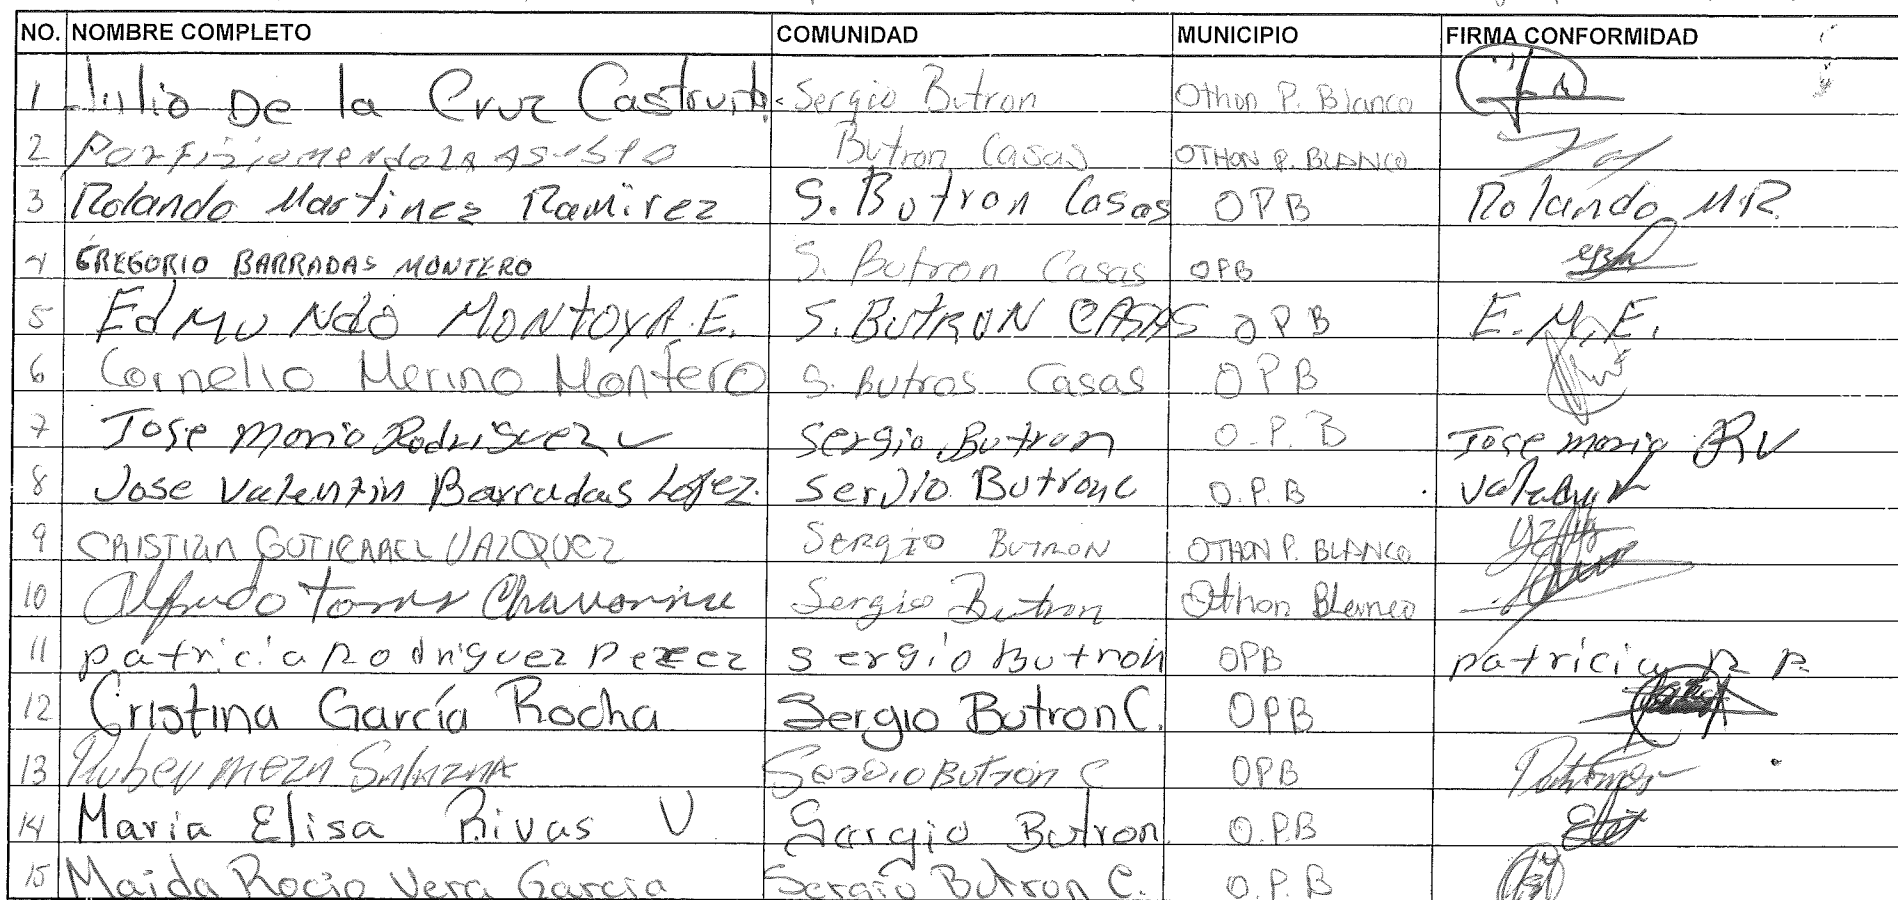 NO. NOMBRE COMPLETO COMUNIDAD MUNICIPIO FIRMA CONFORMIDAD
1 Julio De la Cruz Castruita Sergio Butron Othon P. Blanco
2 Porfirio mendoza Butron Casas OTHON P. BLANCO
3 Rolando Martinez Ramirez S. Butron Casas OPB Rolando M.R.
4 GREGORIO BARRADAS MONTERO S. Butron Casas OPB
5 EdMUNdO MONTOYA.E. S. BUTRON CASAS OPB E.M.E.
6 Cornelio Merino Montero S. Butros Casas OPB
7 Jose Mario Rodriguez V Sergio Butron O.P.B Jose mario RV
8 Jose Valentin Barradas Lopez. Serjio Butron C O.P.B
9 CRISTIAN GUTIERREZ VAZQUEZ SERGIO BUTRON OTHON P. BLANCO
10 Alfredo Torres Sergio Butron Othon Blanco
11 patricia Rodriguez Perez sergio Butron OPB patricia R P
12 Cristina García Rocha Sergio Butron C. OPB
13 Ruben meza Salazar Sergio Butron C OPB
14 Maria Elisa Rivas V Sergio Butron O.P.B
15 Maida Rocio Vera Garcia Sergio Butron C. O.P.B